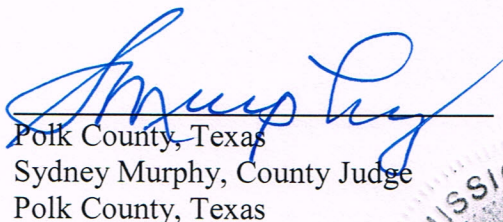 SMurphy
Polk County, Texas
Sydney Murphy, County Judge
Polk County, Texas
ISSI